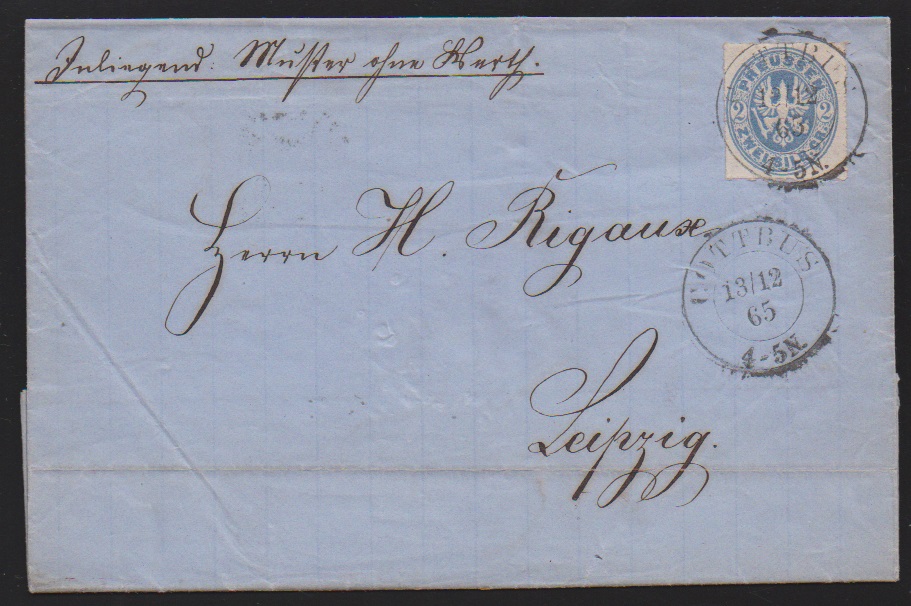 Inliegend: Muster ohne Werth.
PREUSSEN
2 2
ZWEI SILB. GR.
13/12
65
4-5N.
Herrn H. Rigaux
COTTBUS
13/12
65
4-5N.
Leipzig.